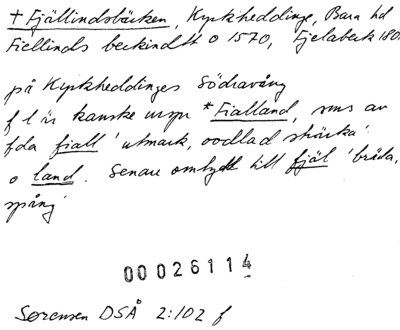 + Fjällindsbäcken, Kyrkheddinge, Bara hd
Fiellinds beckindtt o 1570, Fjelabeck 180
på Kyrkheddinges Södravång
f l är kanske urspr * Fialland, sms av
fda fiall 'utmark, oodlad sträcka'
o land. Senare ombytt till fjäl 'bräda,
spång'
00026114
Sørensen DSÅ 2:102 f